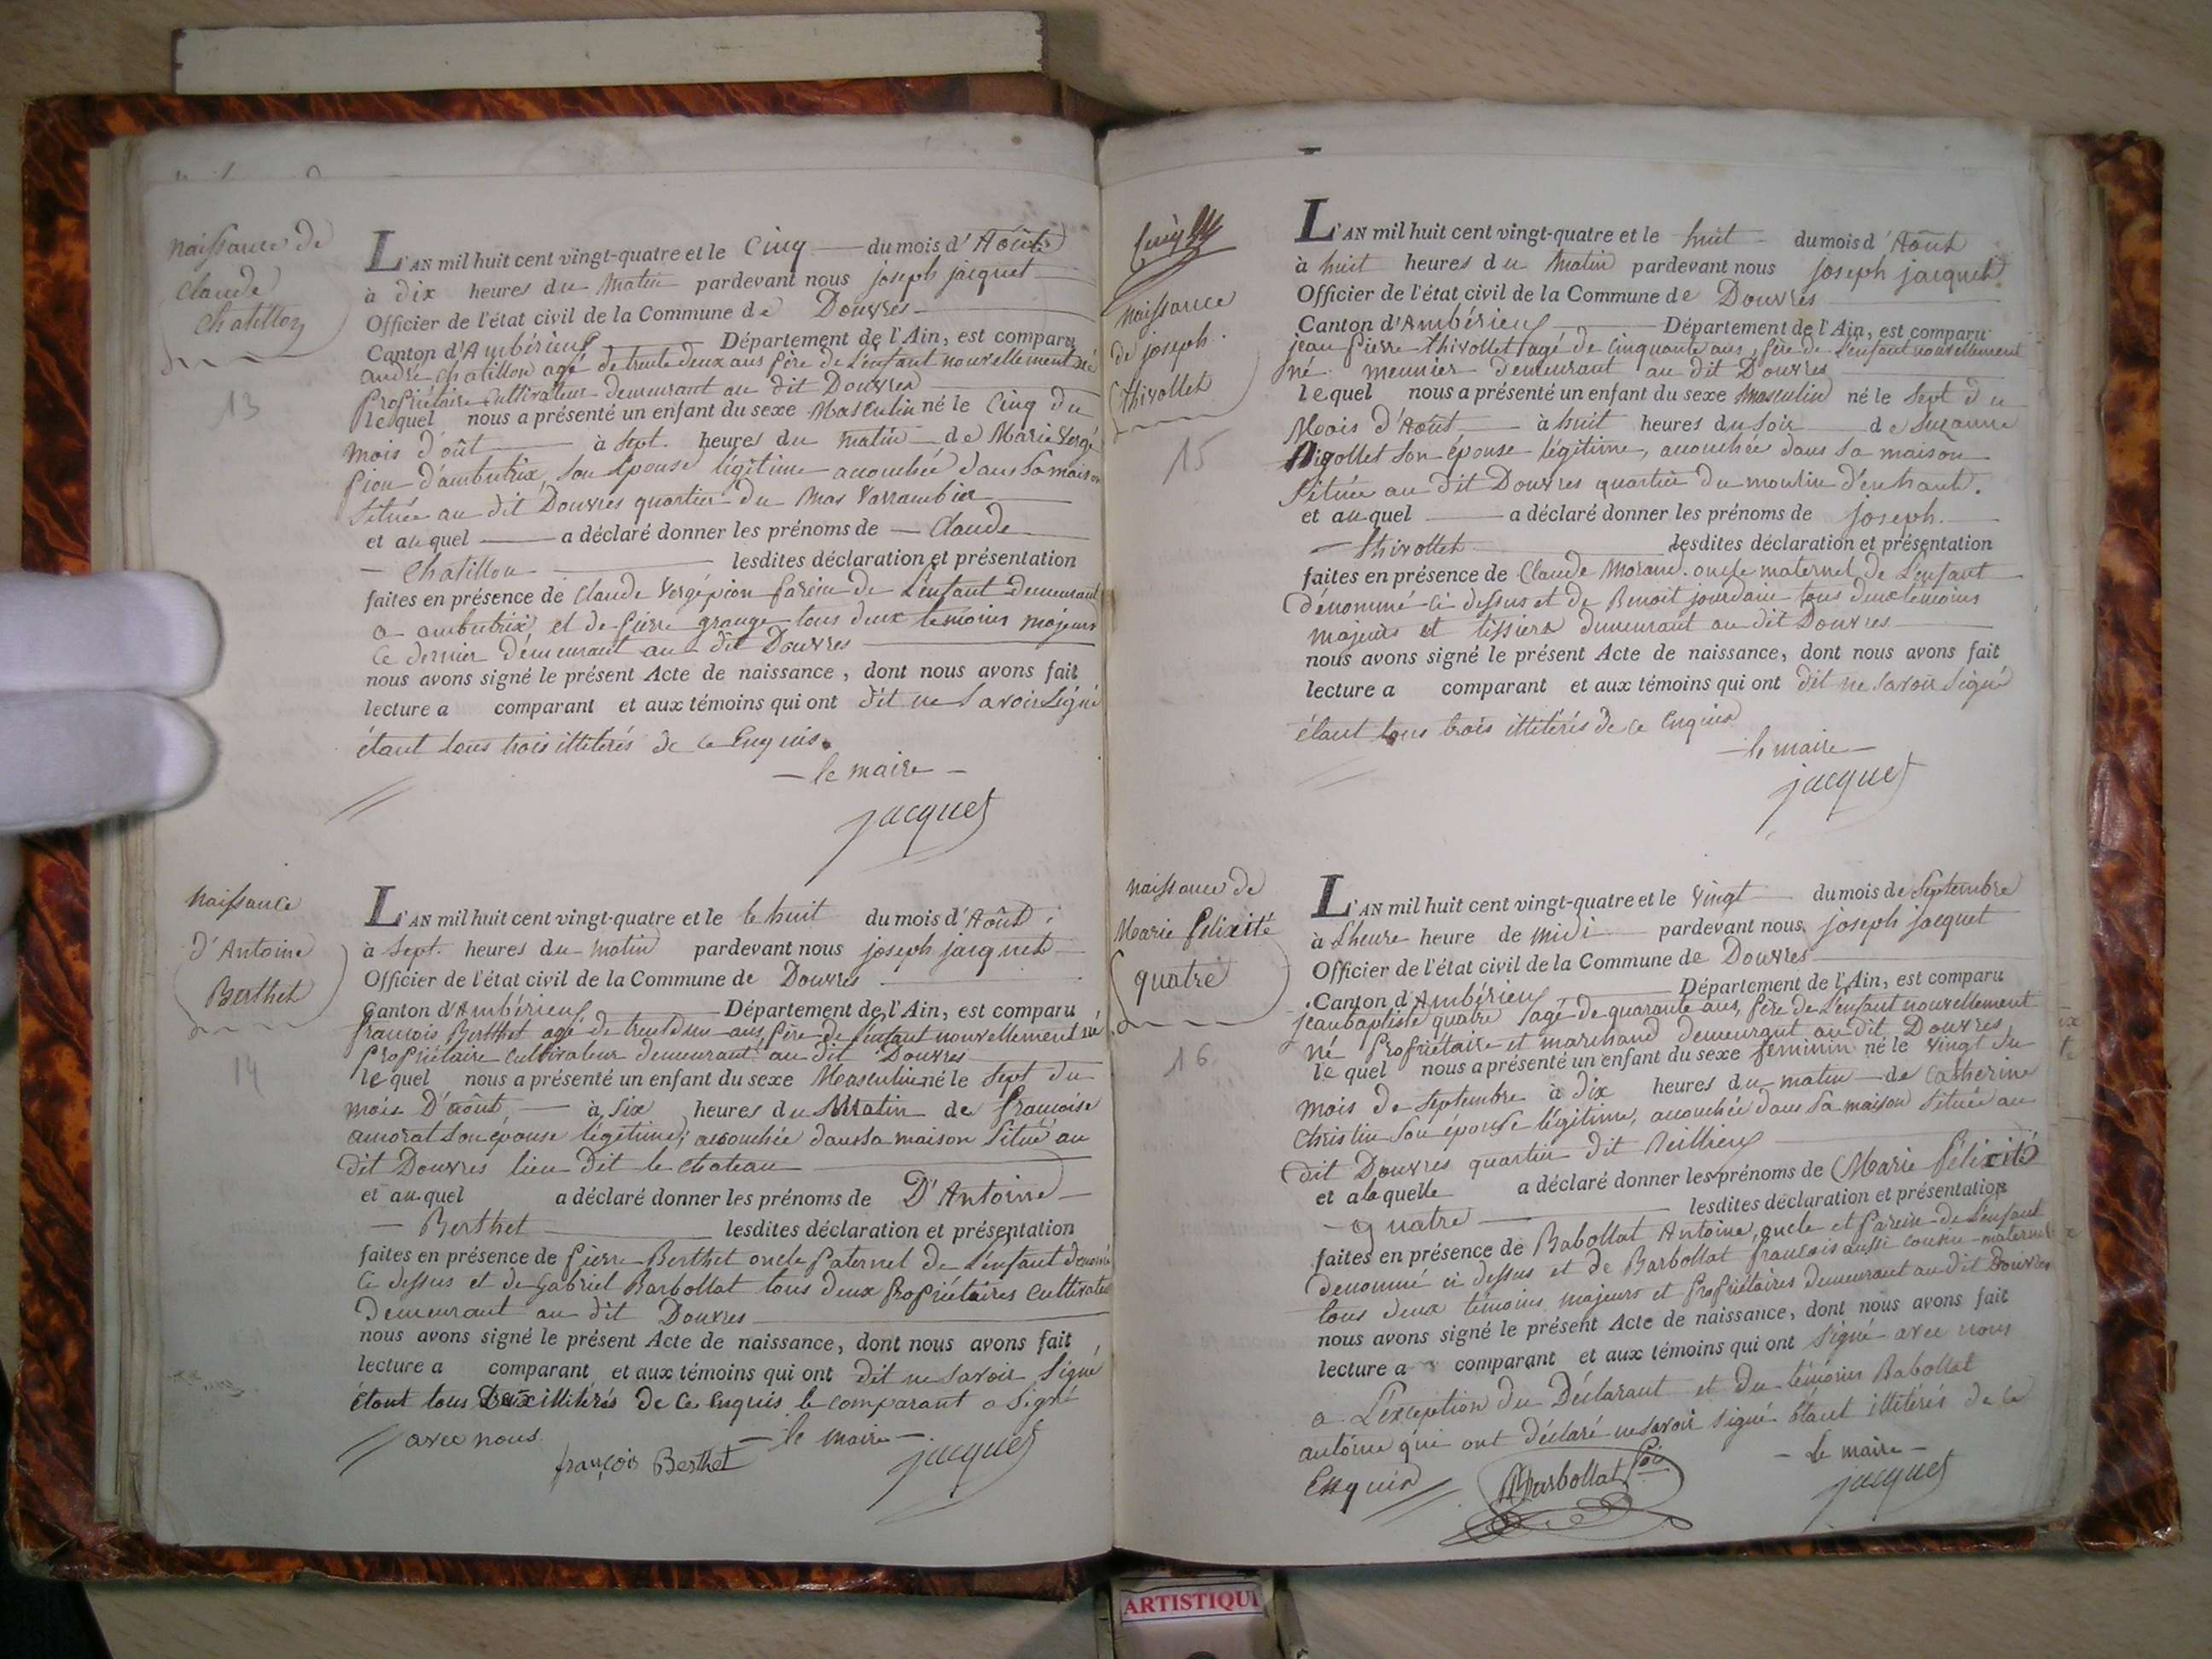 naissance de
Claude
Chatillon
13
L'AN mil huit cent vingt-quatre et le Cinq du mois d'Août
à dix heures du Matin pardevant nous joseph jacquet
Officier de l'état civil de la Commune de Douvres
Canton d'Ambérieux Département de l'Ain, est comparu
andré chatillon agé de trente deux ans père de L'enfant nouvellement né
Propriétaire Cultivateur demeurant au dit Douvres
lequel nous a présenté un enfant du sexe Masculin né le Cinq du
mois d'oût à sept heures du matin de Marie Vergé
pion d'ambutrix, son Epouse légitime accouchée dans Sa maison
Située au dit Douvres quartier du Mas Varrambier
et auquel a déclaré donner les prénoms de Claude
Chatillon lesdites déclaration et présentation
faites en présence de Claude Vergépion parein de L'enfant demeurant
a ambutrix, et de pierre grange tous deux temoins majeurs
Ce dernier demeurant au dit Douvres
nous avons signé le présent Acte de naissance, dont nous avons fait
lecture a comparant et aux témoins qui ont dit ne Savoir Signé
étant tous trois illitérés de ce Enquis.
le maire
jacquet
naissance
d'Antoine
Berthet
14
L'AN mil huit cent vingt-quatre et le le huit du mois d'Août
à Sept heures du matin pardevant nous joseph jacquet
Officier de l'état civil de la Commune de Douvres
Canton d'Ambérieux Département de l'Ain, est comparu
francois Berthet agé de trente ans, père de L'enfant nouvellement né
Propriétaire Cultivateur demeurant au dit Douvres
lequel nous a présenté un enfant du sexe Masculin né le Sept du
mois D'août à Six heures du Matin de francoise
amorat Son épouse légitime, accouchée dans sa maison Situé au
dit Douvres lieu dit le chateau
et auquel a déclaré donner les prénoms de D'Antoine
Berthet lesdites déclaration et présentation
faites en présence de pierre Berthet oncle paternel de L'enfant denomé
Ce dessus et de Gabriel Barbollat tous deux propriétaires Cultivate
demeurant au dit Douvres
nous avons signé le présent Acte de naissance, dont nous avons fait
lecture a comparant et aux témoins qui ont dit ne Savoir Signé
étant tous Deux illitérés de Ce Enquis le comparant a Signé
avec nous le maire
françois Berthet jacquet
naissance
de joseph
Thivollet
15
L'AN mil huit cent vingt-quatre et le huit du mois d'Août
à huit heures du Matin pardevant nous joseph jacquet
Officier de l'état civil de la Commune de Douvres
Canton d'Ambérieux Département de l'Ain, est comparu
jean pierre thivollet agé de Cinquante ans, père de L'enfant nouvellement
né meunier demeurant au dit Douvres
lequel nous a présenté un enfant du sexe masculin né le Sept du
Mois d'Août à huit heures du Soir de Suzanne
Son épouse légitime, accouchée dans sa maison
Située au dit Douvres quartier du moulin d'en haut.
et auquel a déclaré donner les prénoms de joseph
thivollet lesdites déclaration et présentation
faites en présence de Claude Morand oncle maternel de L'enfant
dénommé ci dessus et de Benoit jourdain tous deux temoins
majeurs et tissiers demeurant au dit Douvres
nous avons signé le présent Acte de naissance, dont nous avons fait
lecture a comparant et aux témoins qui ont dit ne Savoir Signé
étant tous trois illitérés de Ce Enquis
le maire
jacquet
naissance de
Marie félixité
quatre
16
L'AN mil huit cent vingt-quatre et le vingt du mois de Septembre
à L'heure heure de midi pardevant nous joseph jacquet
Officier de l'état civil de la Commune de Douvres
Canton d'Ambérieux Département de l'Ain, est comparu
jean baptiste quatre agé de quarante ans, père de L'enfant nouvellement
né Propriétaire et marchand demeurant au dit Douvres
lequel nous a présenté un enfant du sexe féminin né le vingt du
mois de Septembre à dix heures du matin de Catherine
Christin Son épouse légitime, accouchée dans Sa maison Située au
dit Douvres quartier dit
et alaquelle a déclaré donner les prénoms de Marie félixité
quatre lesdites déclaration et présentation
faites en présence de Babollat Antoine, oncle et parein de L'enfant
denommé ci dessus et de Barbollat francois aussi cousin maternel
tous deux témoins majeurs et propriétaires demeurant au dit Douvres
nous avons signé le présent Acte de naissance, dont nous avons fait
lecture a comparant et aux témoins qui ont Signé avec nous
a L'exception du Déclarant et du témoin Babollat
antoine qui ont déclaré ne Savoir Signé étant illitérés de Ce
Enquis le maire
Barbollat jacquet
ARTISTIQU